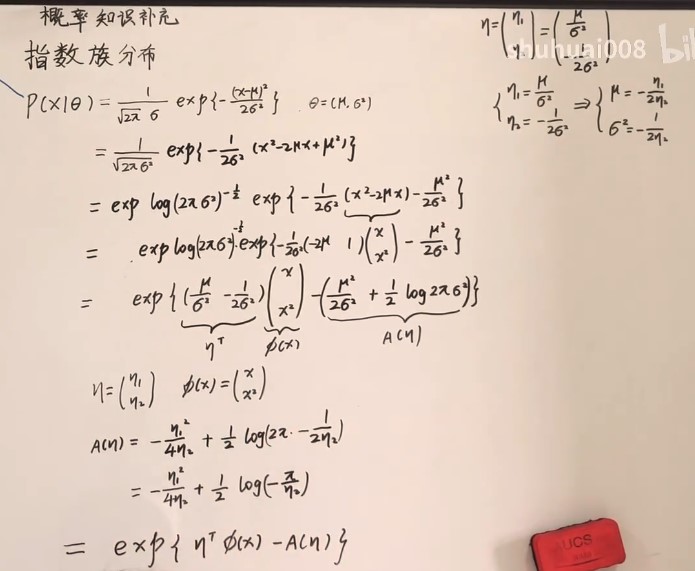 概率知识补充
指数族分布
P(x|θ) = 1/(√2π σ) exp{-(x-μ)²/2σ²} θ=(μ, σ²)
= 1/√2πσ² exp{-1/2σ² (x²-2μx+μ²)}
= exp log(2πσ²)^-½ exp{-1/2σ² (x²-2μx) - μ²/2σ²}
= exp log(2πσ²)^-½ exp{-1/2σ² (-2μ 1) (x x²) - μ²/2σ²}
= exp{(μ/σ² -1/2σ²) (x x²) - (μ²/2σ² + ½ log2πσ²)}
ηᵀ φ(x) A(η)
η = (η₁ η₂) φ(x) = (x x²)
A(η) = -η₁²/4η₂ + ½ log(2π· -1/2η₂)
= -η₁²/4η₂ + ½ log(-π/η₂)
= exp{ηᵀφ(x) - A(η)}
η = (η₁ η₂) = (μ/σ² -1/2σ²)
{η₁ = μ/σ² η₂ = -1/2σ² ⇒ {μ = -η₁/2η₂ σ² = -1/2η₂
shuhuai008 bil
UCS